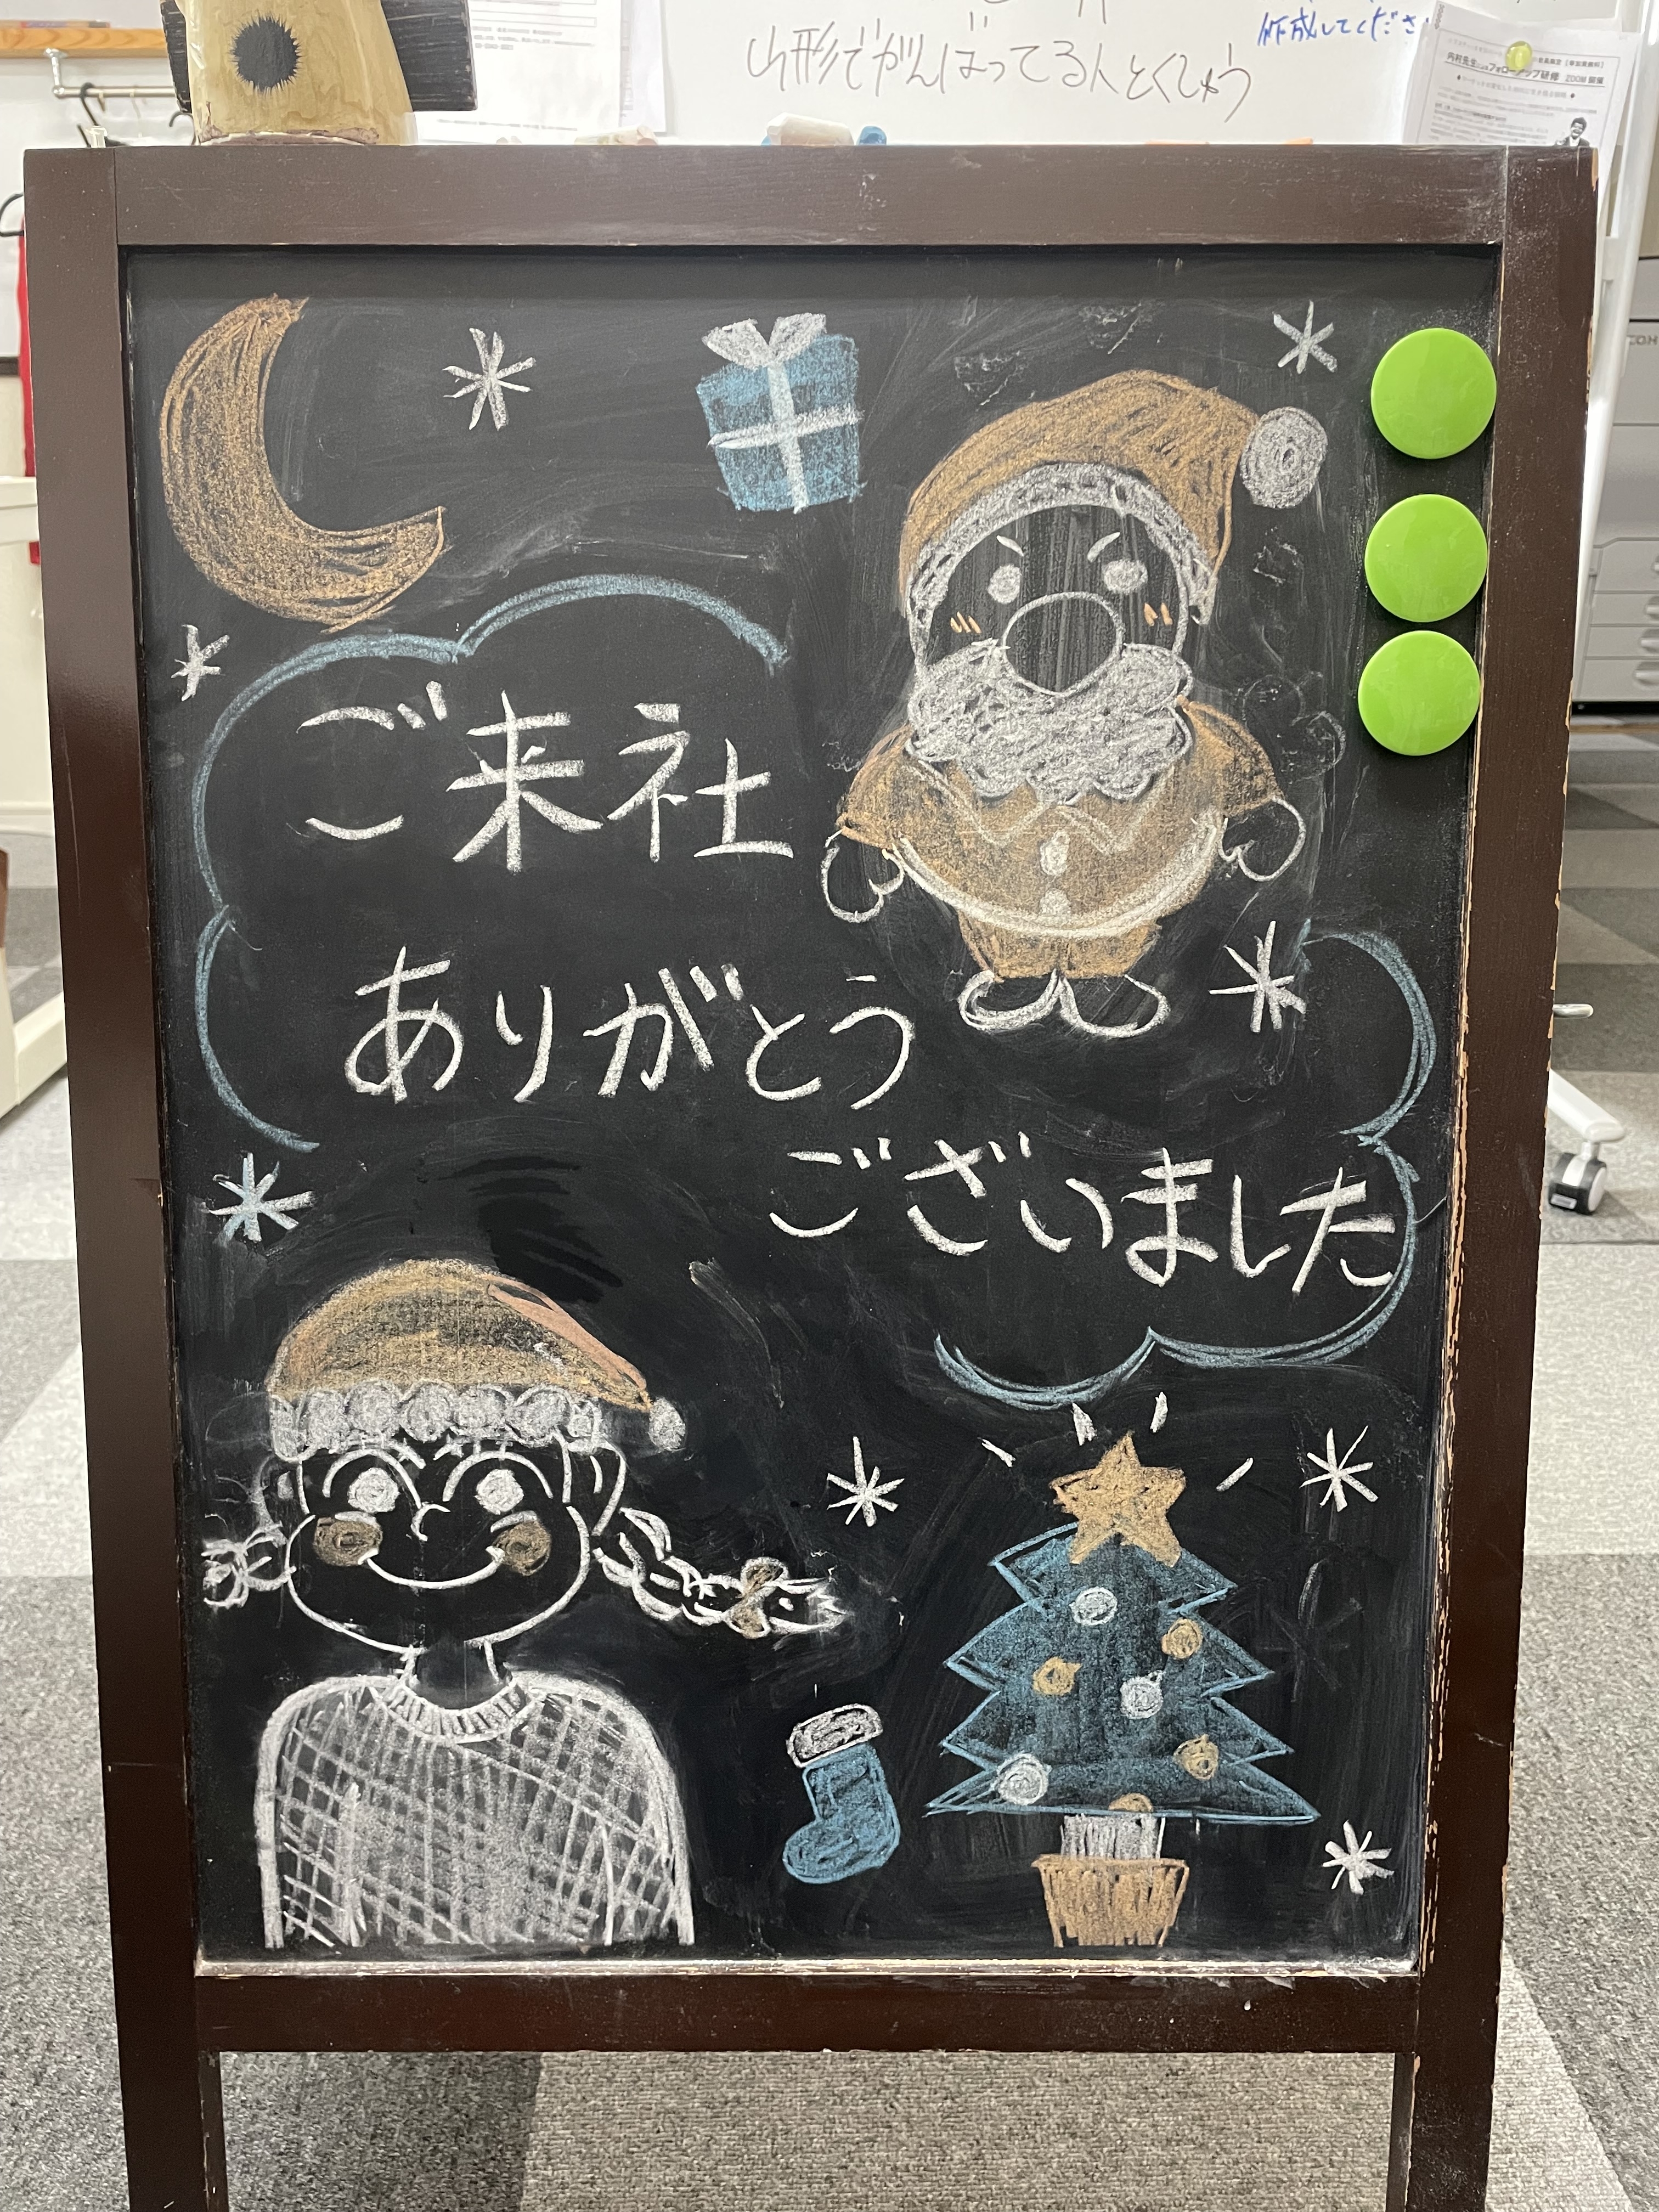 山形でがんばってる人とくしゅう
作成してくださ
内村先生によるフォローアップ研修 ZOOM開催
ご来社
ありがとう
ございました